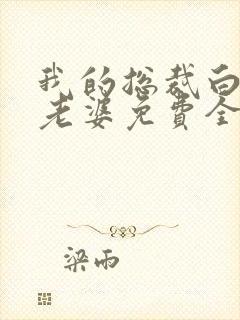 我的总裁白
老婆免费全
梁雨